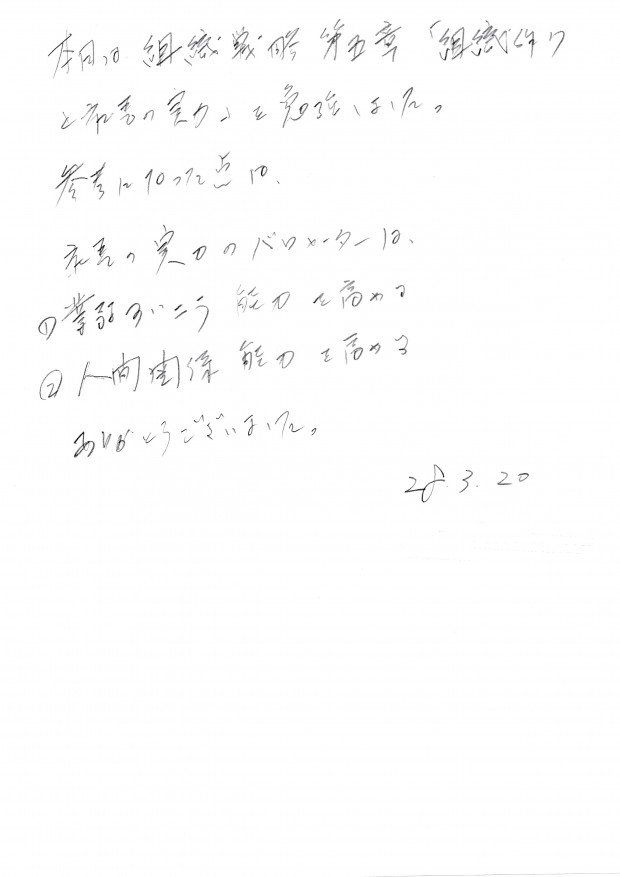 本日は 組織戦略 第五章 「組織作り
と社長の実力」を勉強しました。
参考になった点は、
社長の実力のバロメーターは、
①業務すいこう 能力を高める
②人間関係 能力を高める
ありがとうございました。
28.3.20